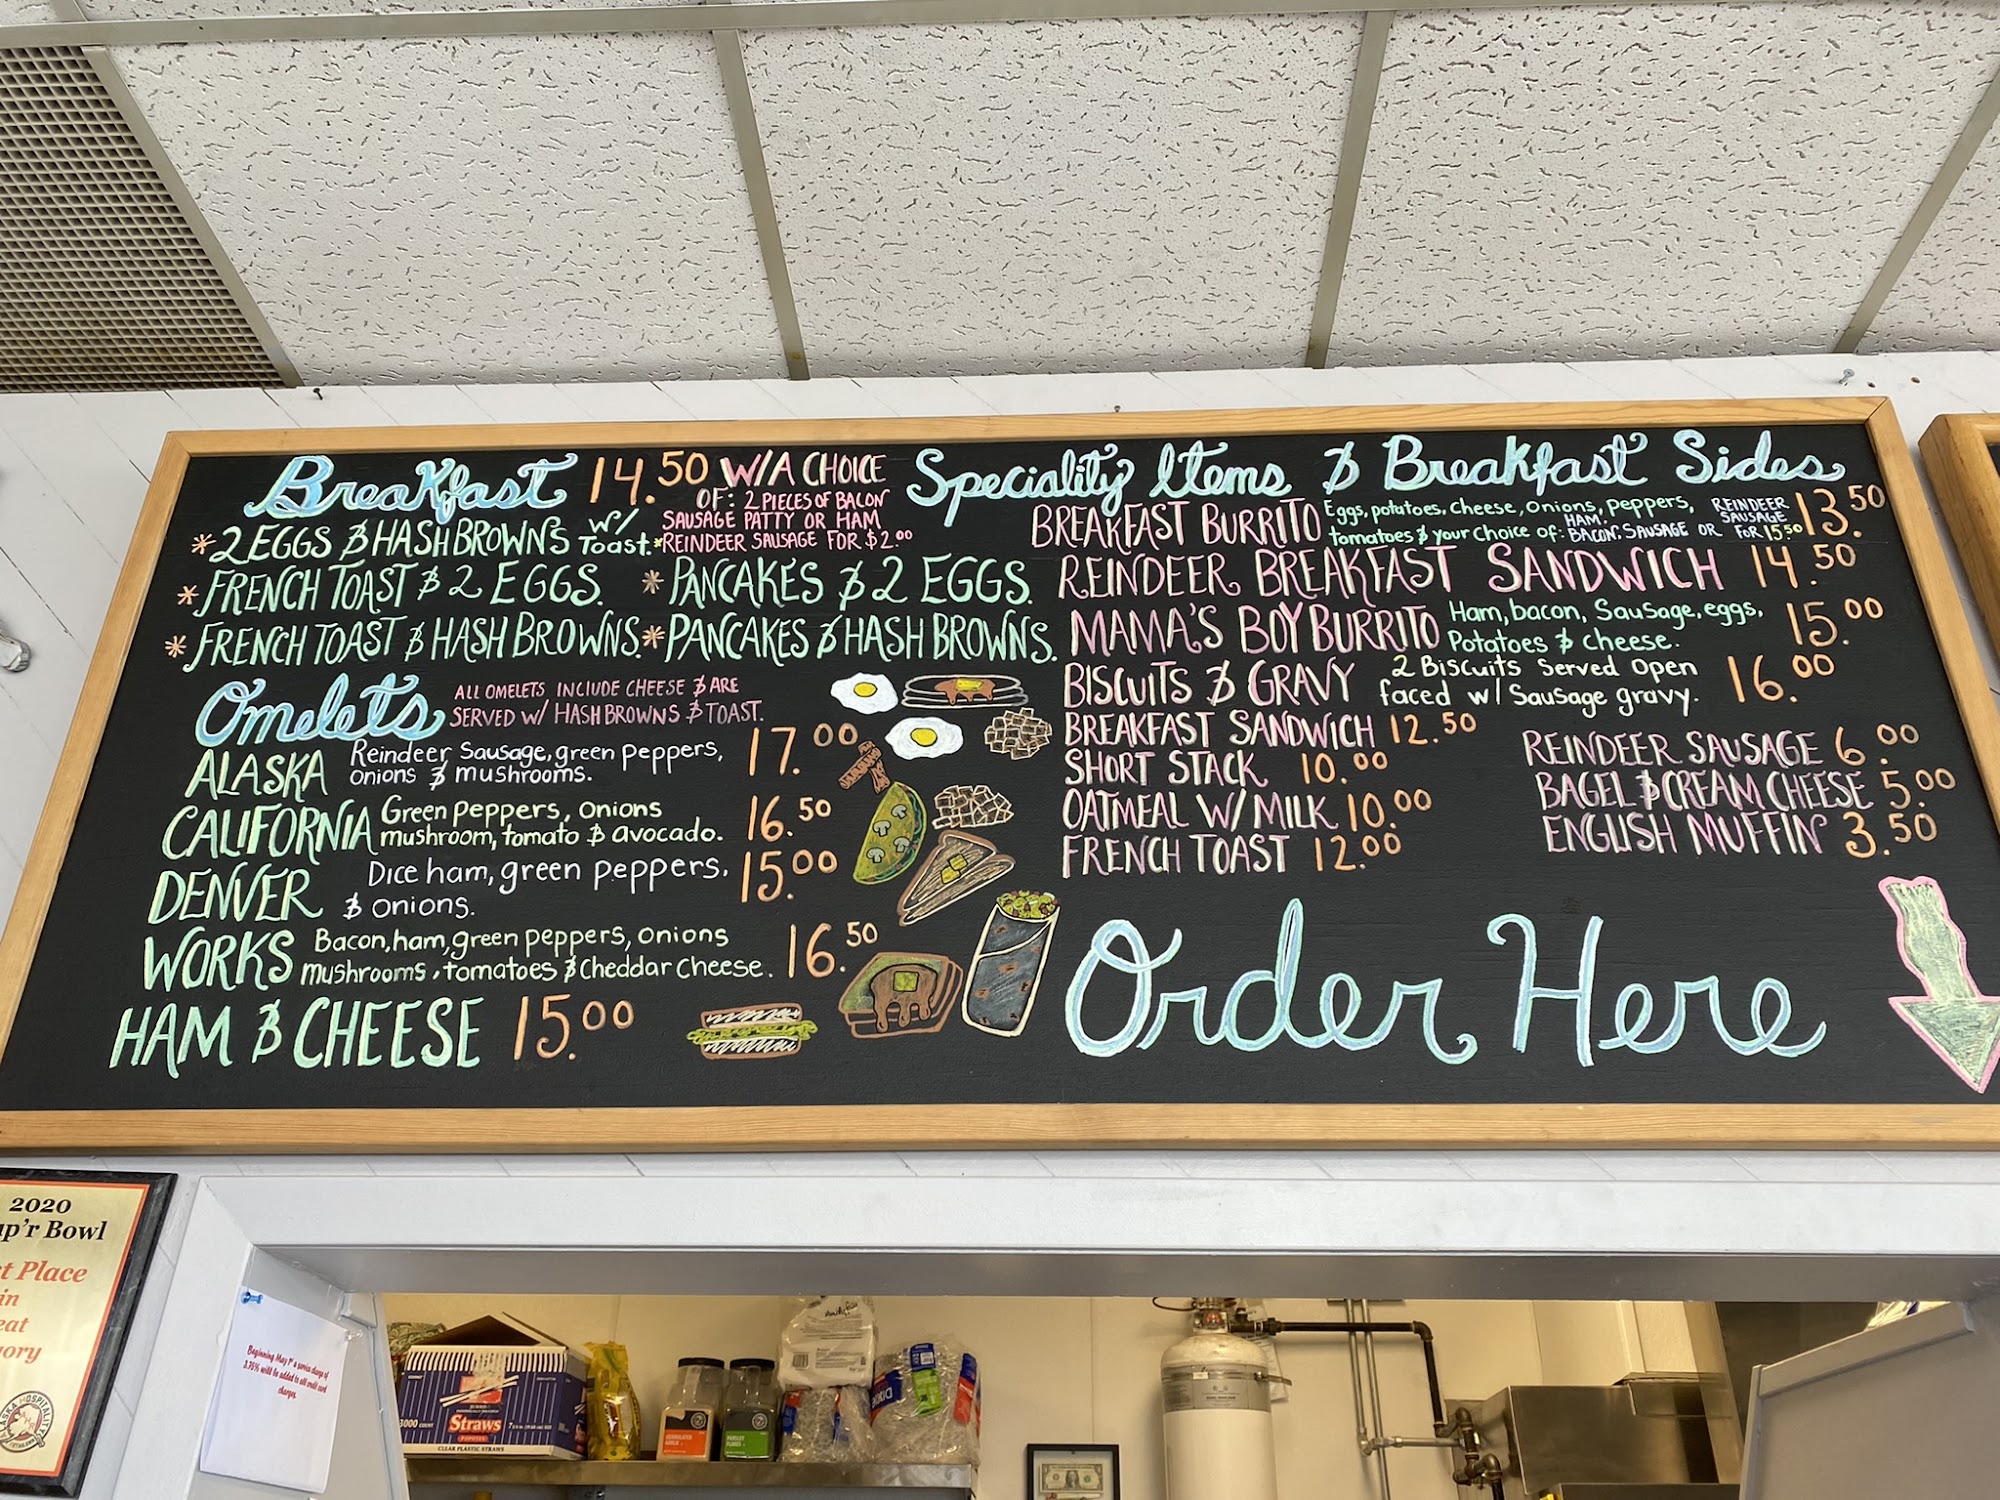 Breakfast 14.50 W/A CHOICE
OF: 2 PIECES OF BACON
SAUSAGE PATTY OR HAM
*REINDEER SAUSAGE FOR $2.00
* 2 EGGS & HASHBROWNS w/ Toast.
* FRENCH TOAST & 2 EGGS.
* PANCAKES & 2 EGGS.
* FRENCH TOAST & HASH BROWNS.
* PANCAKES & HASH BROWNS.
Omelets
ALL OMELETS INCLUDE CHEESE & ARE
SERVED W/ HASHBROWNS & TOAST.
ALASKA Reindeer Sausage, green peppers, 17.00
onions & mushrooms.
CALIFORNIA Green peppers, onions 16.50
mushroom, tomato & avocado.
DENVER Dice ham, green peppers, 15.00
& onions.
WORKS Bacon, ham, green peppers, onions 16.50
mushrooms, tomatoes & Cheddar Cheese.
HAM & CHEESE 15.00
Speciality Items & Breakfast Sides
BREAKFAST BURRITO Eggs, potatoes, cheese, onions, peppers, 13.50
tomatoes & your choice of: HAM, BACON, SAUSAGE OR REINDEER SAUSAGE FOR 15.50
REINDEER BREAKFAST SANDWICH 14.50
MAMA'S BOY BURRITO Ham, bacon, Sausage, eggs, 15.00
Potatoes & cheese.
BISCUITS & GRAVY 2 Biscuits Served Open 16.00
faced w/ Sausage gravy.
BREAKFAST SANDWICH 12.50
SHORT STACK 10.00
OATMEAL W/ MILK 10.00
FRENCH TOAST 12.00
REINDEER SAUSAGE 6.00
BAGEL & CREAM CHEESE 5.00
ENGLISH MUFFIN 3.50
Order Here
2020
p'r Bowl
Place
in
Beginning May 1st a service charge of
3.75% will be added to all credit card
charges.
3000 COUNT
Straws
CLEAR PLASTIC STRAWS